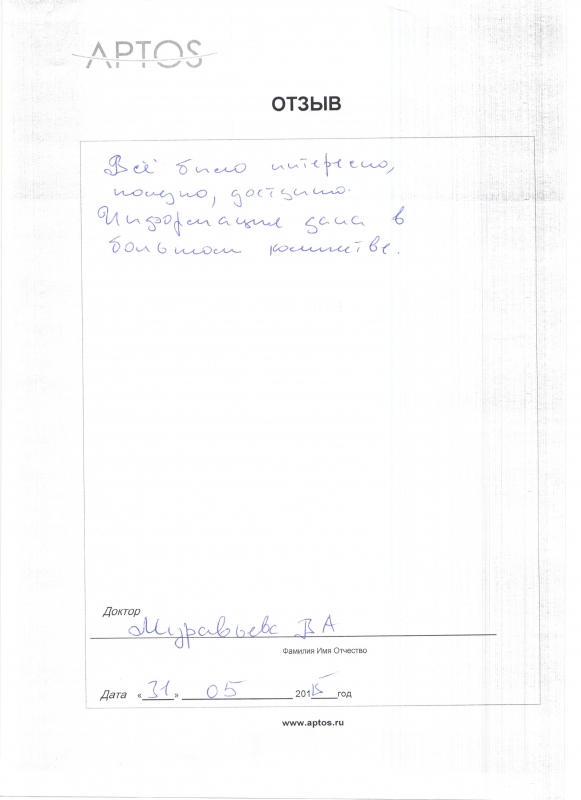 APTOS
ОТЗЫВ
Всё было интересно,
полезно, доступно.
Информация дана в
большом количестве.
Доктор
Муравьева В А
Фамилия Имя Отчество
Дата «31» 05 2015 год
www.aptos.ru